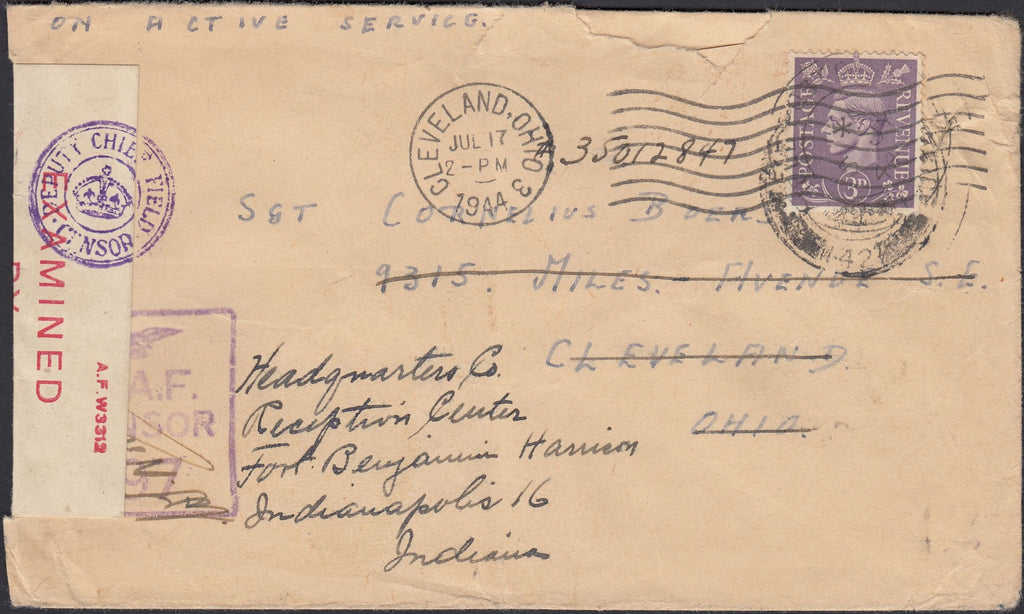 ON ACTIVE SERVICE.
POSTAGE REVENUE
3D
CLEVELAND, OHIO 3
JUL 17
2-PM
1944
35012847
DEPUTY CHIEF FIELD CENSOR
EXAMINED
BY
A.F.W3312
SGT CORNELIUS
9315. MILES. AVENUE S.E.
CLEVELAND.
OHIO.
A.F.
NSOR
97
Headquarters Co.
Reception Center
Fort Benjamin Harrison
Indianapolis 16
Indiana